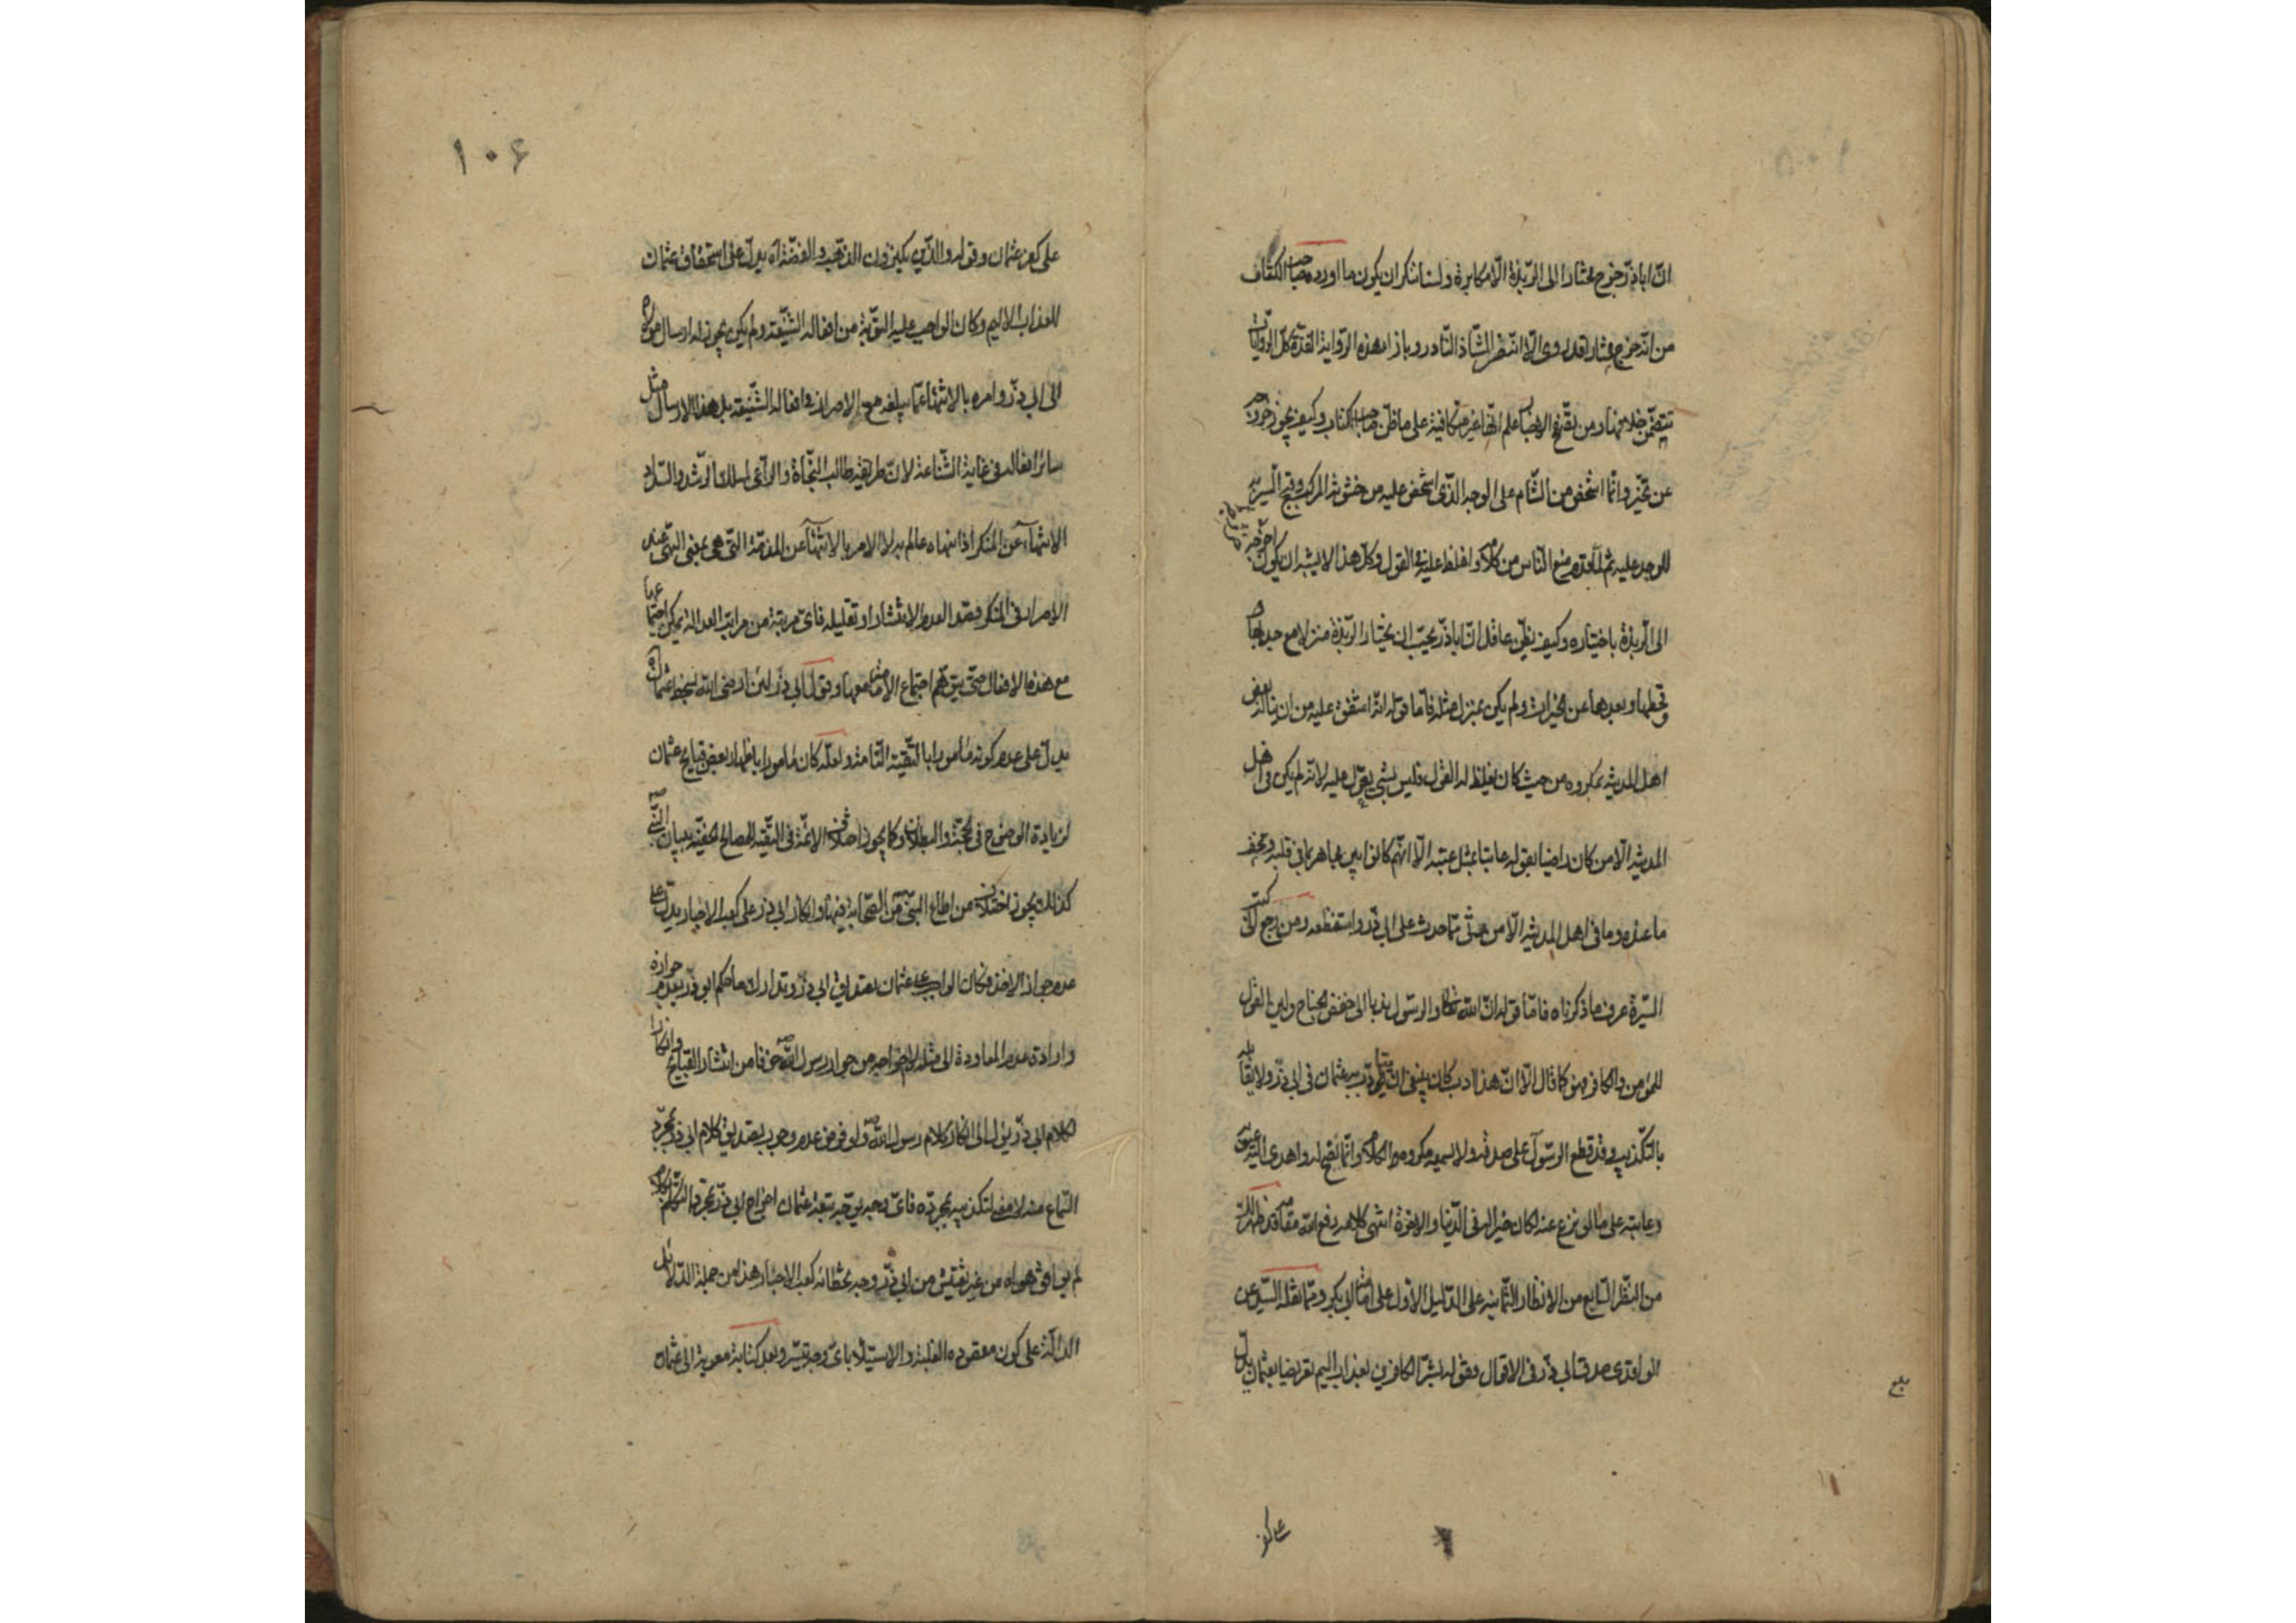 انّ اباذر خرج مختارا الى الربذة الا مكابرة ولسنا ننكر ان يكون ما اورده صاحب الكتاب
من انه خرج مختارا قد روى الّا انّه من الشاذ النادر وبازاء هذه الرواية الفذّة كل الروايات
تتضمن خلافها ومن تصفح الاخبار علم انّها غير متكافية على ما ظنّ صاحب الكتاب وكيف يجوز خروجه
عن تخيّر وانّما اشخص من الشام على الوجه الذى اشخص عليه من خشونة المركب وقبح السير به
للوجد عليه ثم لمّا قدم منع الناس من كلامه واغلظ عليه فى القول وكل هذا لا يشبه ان يكون اخرجه
الى الربذة باختياره وكيف يظنّ عاقل انّ اباذر يحبّ ان يختار الربذة منزلا مع جدبها
وقحطها وبعدها عن الخيرات ولم يكن بمنزل مثله فامّا قوله انّه اشفق عليه من ان يناله بعض
اهل المدينة بمكروه من حيث كان يغلظ له القول فليس بشئ يعوّل عليه لانّه لم يكن فى اهل
المدينة الّا من كان راضيا بقوله عاتبا بمثل عتبه الّا انّهم كانوا بين مجاهر بما فى قلبه ومخف
ما عنده وما فى اهل المدينة الّا من رثى ممّا حدث على ابى ذر واستفظعه ومن رجع الى كتب
السيرة عرف ما ذكرناه فامّا قوله انّ الله تعالى والرسول ندبا الى خفض الجناح ولين القول
للمؤمن والكافر فهو كما قال الّا انّ هذا ادب كان ينبغى ان يتأدّب به عثمان فى ابى ذر ولا يقابله
بالتكذيب وقد قطع الرسول على صدقه ولا يسمعه مكروه الكلام وانّما نصح له واهدى اليه عيوبه
وعاتبه على ما لو نزع عنه لكان خيرا له فى الدنيا والاخرة انتهى كلامه رفع الله مقامه قد ظهر لك
من النظر السابع من الانظار الثمانية على الدليل الاول على امامة ابى بكر وممّا نقله السيد عن
الواقدى صدق ابى ذر فى الاقوال وقوله بشّر الكافرين بعذاب اليم تعريضا بعثمان يدلّ
بلغ
على كفر
١٠۶
على كفر عثمان وقوله والذين يكنزون الذهب والفضة اه يدلّ على استحقاق عثمان
للعذاب الاليم وكان الواجب عليه التوبة من افعاله الشنيعة ولم يكن يجوز له ارسال مولاه
الى ابى ذر وامره بالانتهاء عمّا يبلغه مع الاصرار فى افعاله الشنيعة بل هذا الارسال مثل
سائر افعاله فى غاية الشناعة لانّ طريقة طالب النجاة والراعى لمسلك الرشد والسداد
الانتهاء عن المنكر اذا نهاه عالم به لا الامر بالانتهاء عن المذمّة التى هى بمعنى النهى عن
الاصرار فى المنكر وقصد العدم الانتشار او تقليله فاىّ مرتبة من مراتب العدالة يمكن اجتماعها
مع هذه الافعال حتى يتوهّم اجتماع الامامة معها وقول ابى ذر لئن ارضى الله بسخط عثمان اه
يدل على عدم كونه مأمورا بالتقية التامّة ولعلّه كان مأمورا باظهار بعض قبايح عثمان
لزيادة الوضوح فى الحجّة والبطلان وكما يجوز اختلاف الائمة فى التقية للمصالح الخفية ببيان النبى
كذلك يجوز اختلاف من اطاع النبى من الصحابة فيها وانكار ابى ذر على كعب الاحبار يدل على
عدم جواز الاخذ فكان الواجب على عثمان تصديق ابى ذر وتدارك ما حكم ابو ذر بعدم جوازه
وارادة عدم المعاودة الى مثله لا اخراجه من جوار رسول الله خوفا من انتشار القبايح وانكار
كلام ابى ذر يؤل الى انكار كلام رسول الله ولو فرض عدم وجوب تصديق كلام ابى ذر بمجرّد
السماع منه لا معنى لتكذيبه بمجرّده فاىّ وجه يوجّه تبعة عثمان اخراج ابى ذر بمجرّد التكلّم بكلام
لم يوافق هواه من غير تفتيش من ابى ذر وجه تخطائه كعب الاحبار هذا من جملة الدلائل
الدالّة على كون مقصوده الغلبة والاستيلاء باىّ وجه تيسّر وبعد كتابة معوية الى عثمان